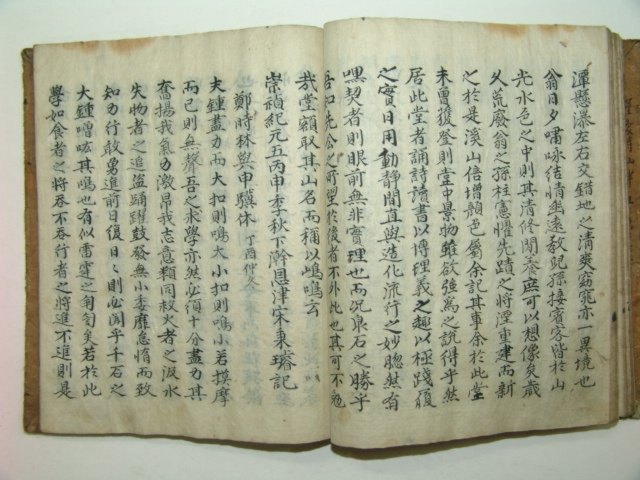 潭懸瀑左右交錯地之清爽窈窕亦一異境也
翁日夕嘯咏結情幽遠教兒孫接賓客皆於山
光水色之中則其清修閒養庶可以想像矣歲
久荒廢翁之孫柱憲懼先蹟之將湮重建而新
之於是溪山倍增顏色屬余記其事余於此堂
未曾獲登則堂中景物雖欲強爲之說得乎然
居此堂者誦詩讀書以博理義之趣以極踐履
之實日用動靜間直與造化流行之妙腮然有
嘿契者則眼前無非實理也而况泉石之勝乎
吾知先公之所望於後者不外此也其可不勉
哉堂額取其山名而稱以嵋鳴云
崇禎紀元五丙申季秋下澣恩津宋秉璿記
鄭時林與申驥休 丁酉仲冬
大鍾盡力而大扣則鳴大小扣則鳴小若摸摩
而已則無聲吾之求學亦然必須十分盡力其
奮揚我氣力激昂我志意類同救火者之汲水
失物者之追盜踊躍鼓發無小委靡怠惰而致
知力行敢勇進前日復日〻則必閎乎千石之
大鍾噌吰其鳴也有似雷霆之訇訇矣若於此
學如食者之將吞不吞行者之將進不進則是